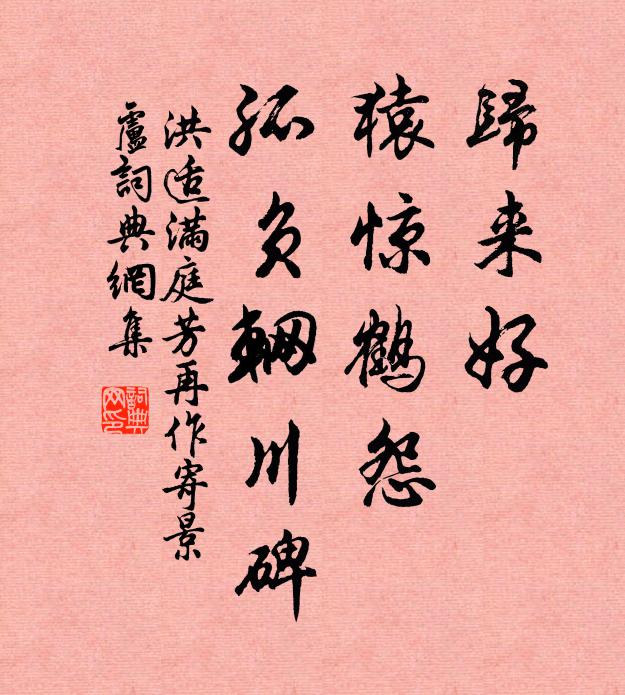 歸来好
猿惊鶴怨
孤负輞川碑
洪适满庭芳再作寄景
廬詞典網集
詞典网印